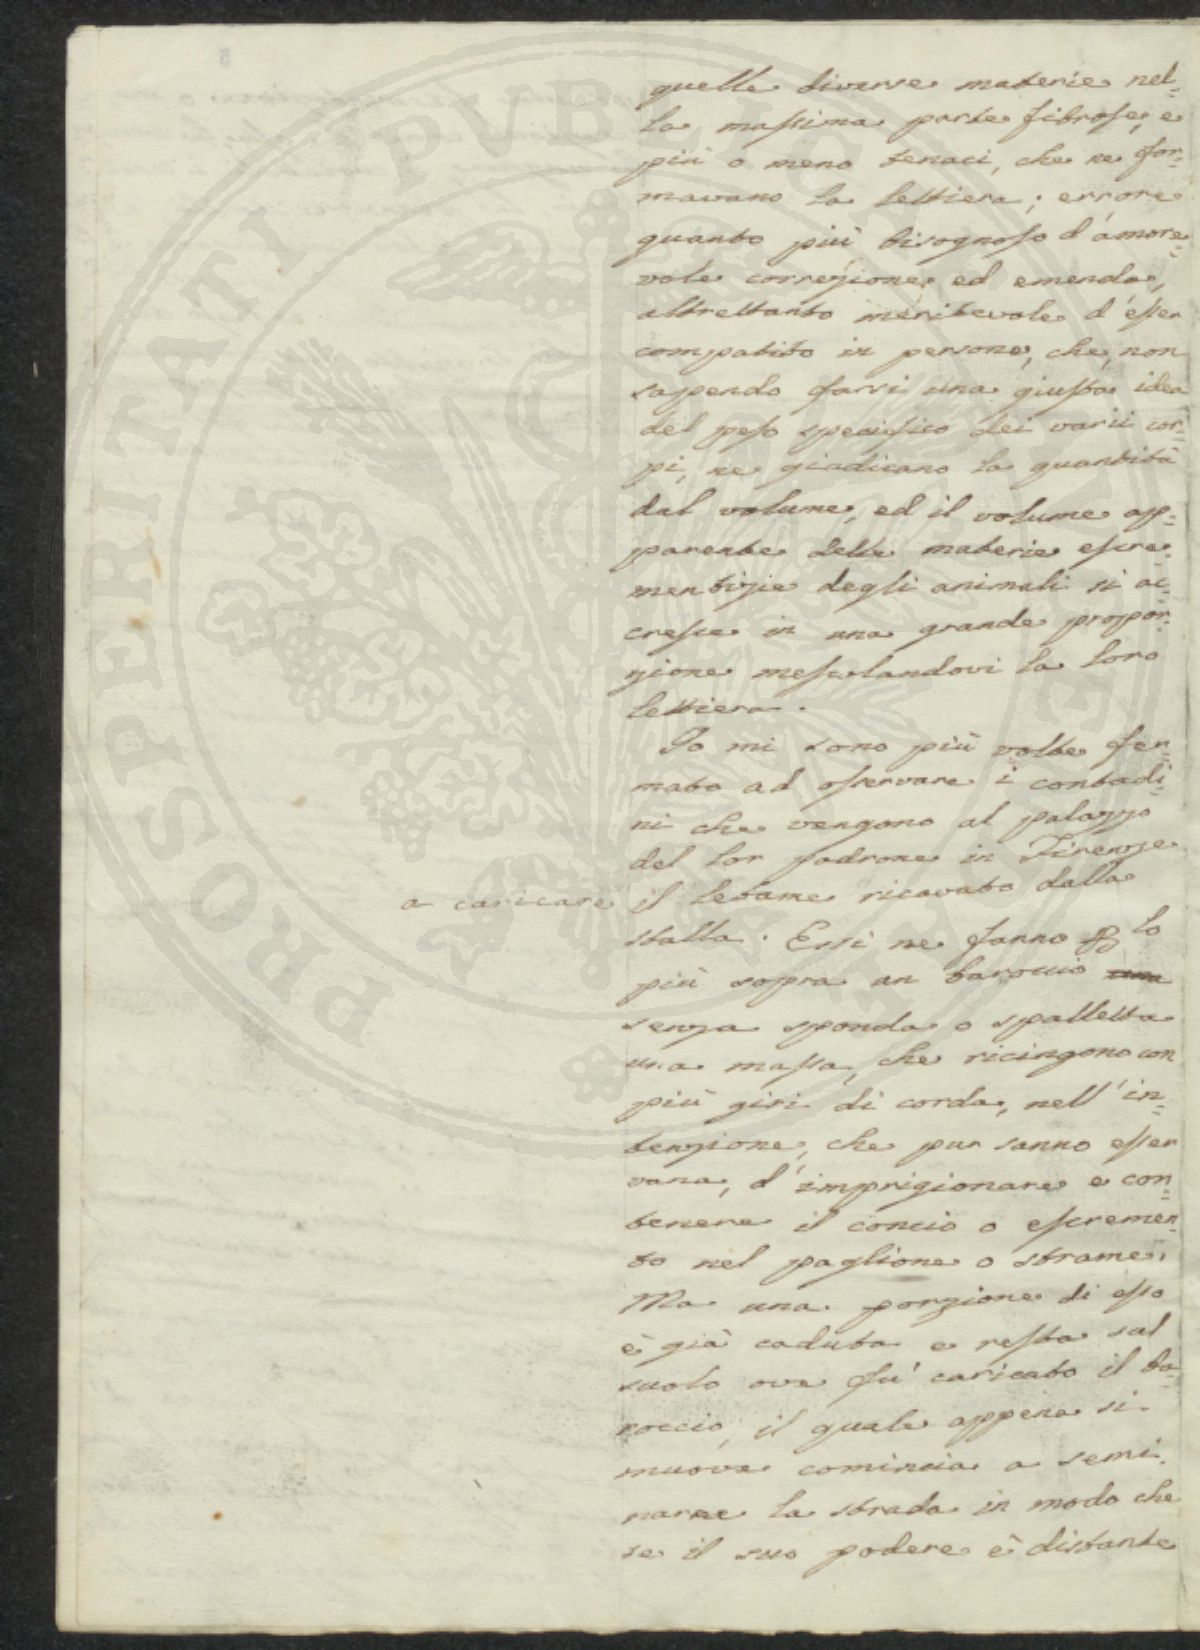 PROSPERITATI PVBLICAE
quelle diverse materie nel-
la massima parte fibrose, e
più o meno tenaci, che ne for-
mavano la lettiera; errore
quanto più bisognoso d'amore-
vole correzione, ed emenda,
altrettanto meritevole d'esser
compatito in persone, che, non
sapendo farsi una giusta idea
del peso specifico dei varii cor-
pi, ne giudicano la quantità
dal volume, ed il volume ap-
parente delle materie escre-
mentizie degli animali si ac-
cresce in una grande propor-
zione mescolandovi la loro
lettiera.
Io mi sono più volte fer-
mato ad osservare i contadi-
ni che vengono al palazzo
del lor padrone in Firenze
a caricare il letame ricavato dalla
stalla. Essi ne fanno lo
più sopra un baroccio una
senza sponda o spalletta
una massa, che ricingono con
più giri di corda, nell'in-
tenzione, che pur sanno esser
vana, d'imprigionare e con-
tenere il concio o escremen-
to nel paglione o strame.
Ma una porzione di esso
è già caduta e resta sul
suolo ove fu' caricato il ba-
roccio, il quale appena si
muove comincia a semi-
narne la strada in modo che
se il suo podere è distante